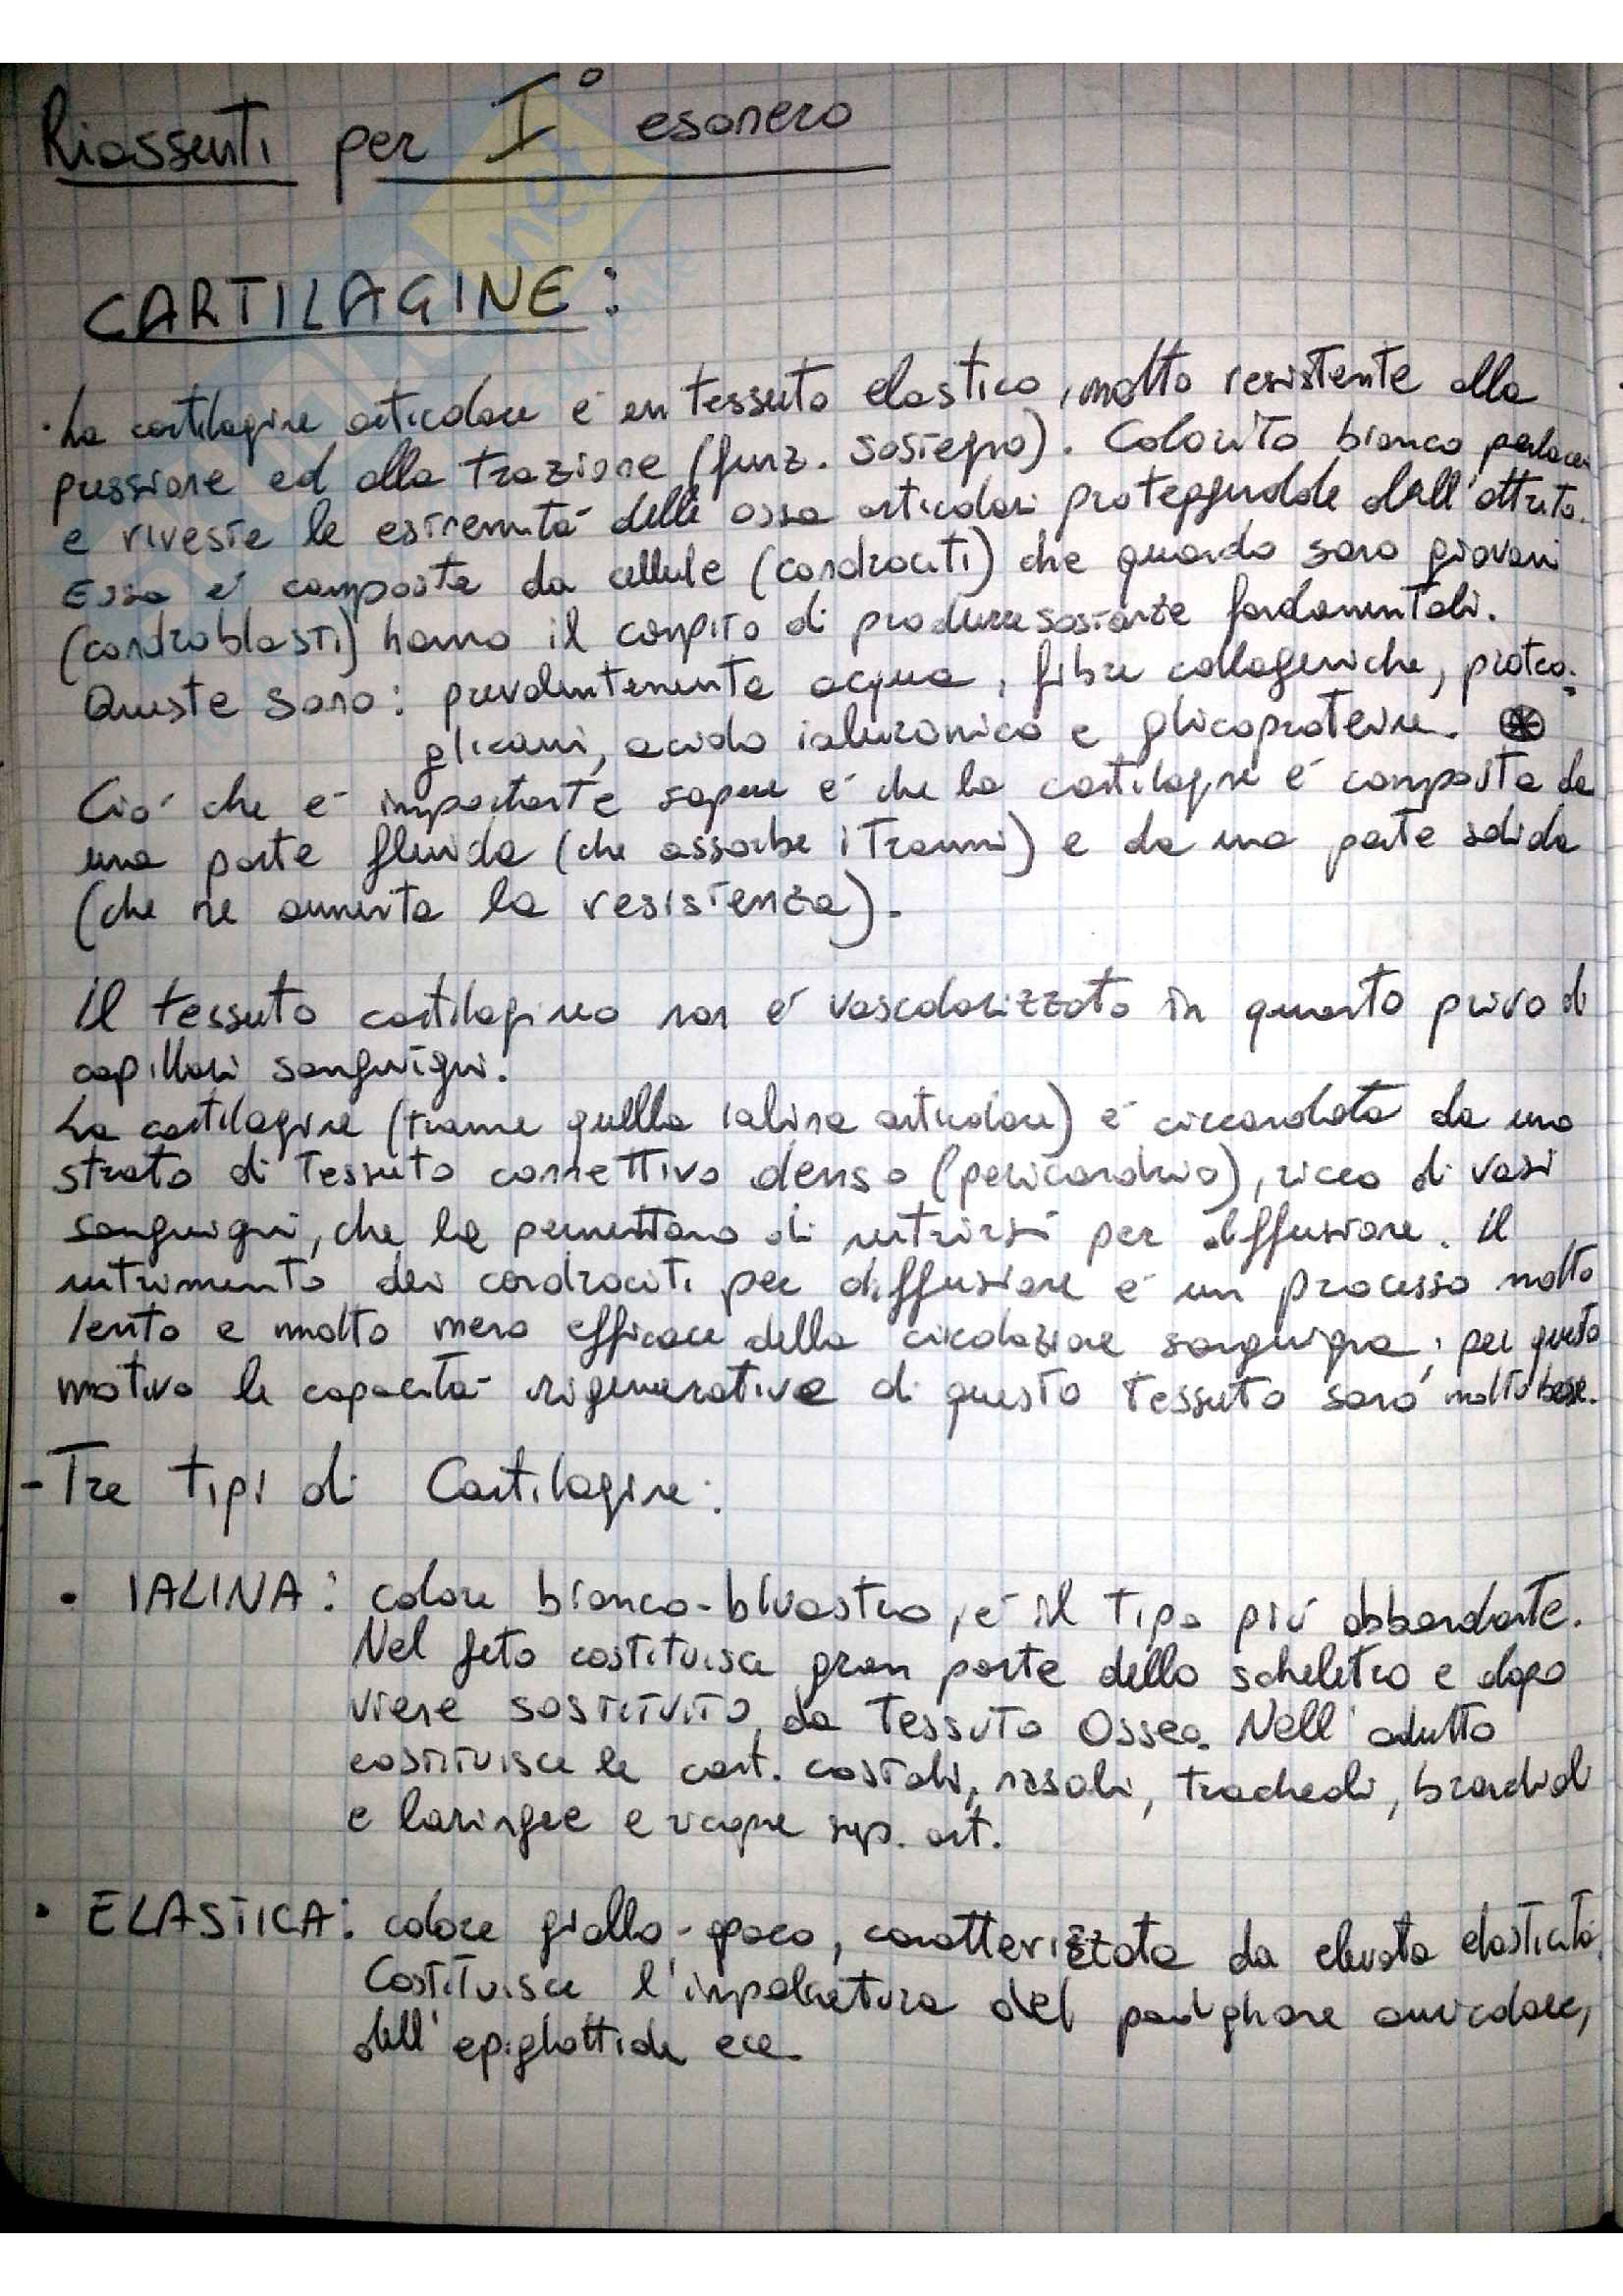 Riassunti per I° esonero
CARTILAGINE:
· La cartilagine articolare é un tessuto elastico, molto resistente alla
pressione ed alla trazione (funz. sostegno). Colorito bianco perlaceo
e riveste le estremità delle ossa articolari proteggendole dall'attrito.
Essa é composta da cellule (condrociti) che quando sono giovani
(condroblasti) hanno il compito di produrre sostanze fondamentali.
Queste sono: prevalentemente acqua, fibre collageniche, proteo-
glicani, acido ialuronico e glicoproteine. ⊛
Ció che é importante sapere é che la cartilagine é composta da
una parte fluida (che assorbe i traumi) e da una parte solida
(che ne aumenta la resistenza).
Il tessuto cartilagineo non é vascolarizzato in quanto privo di
capillari sanguigni.
La cartilagine (tranne quella ialina articolare) é circondata da uno
strato di tessuto connettivo denso (pericondrio), ricco di vasi
sanguigni, che le permettono di nutrirsi per diffusione. Il
nutrimento dei condrociti per diffusione é un processo molto
lento e molto meno efficace della circolazione sanguigna; per questo
motivo le capacità rigenerative di questo tessuto sono molto basse.
- Tre tipi di Cartilagine:
• IALINA: colore bianco-bluastro, é il tipo più abbondante.
Nel feto costituisce gran parte dello scheletro e dopo
viene sostituito da tessuto osseo. Nell'adulto
costituisce le cart. costali, nasali, tracheali, bronchiali
e laringee e ricopre sup. art.
• ELASTICA: colore giallo-opaco, caratterizzata da elevata elasticità.
Costituisce l'impalcatura del padiglione auricolare,
dell'epiglottide ecc.